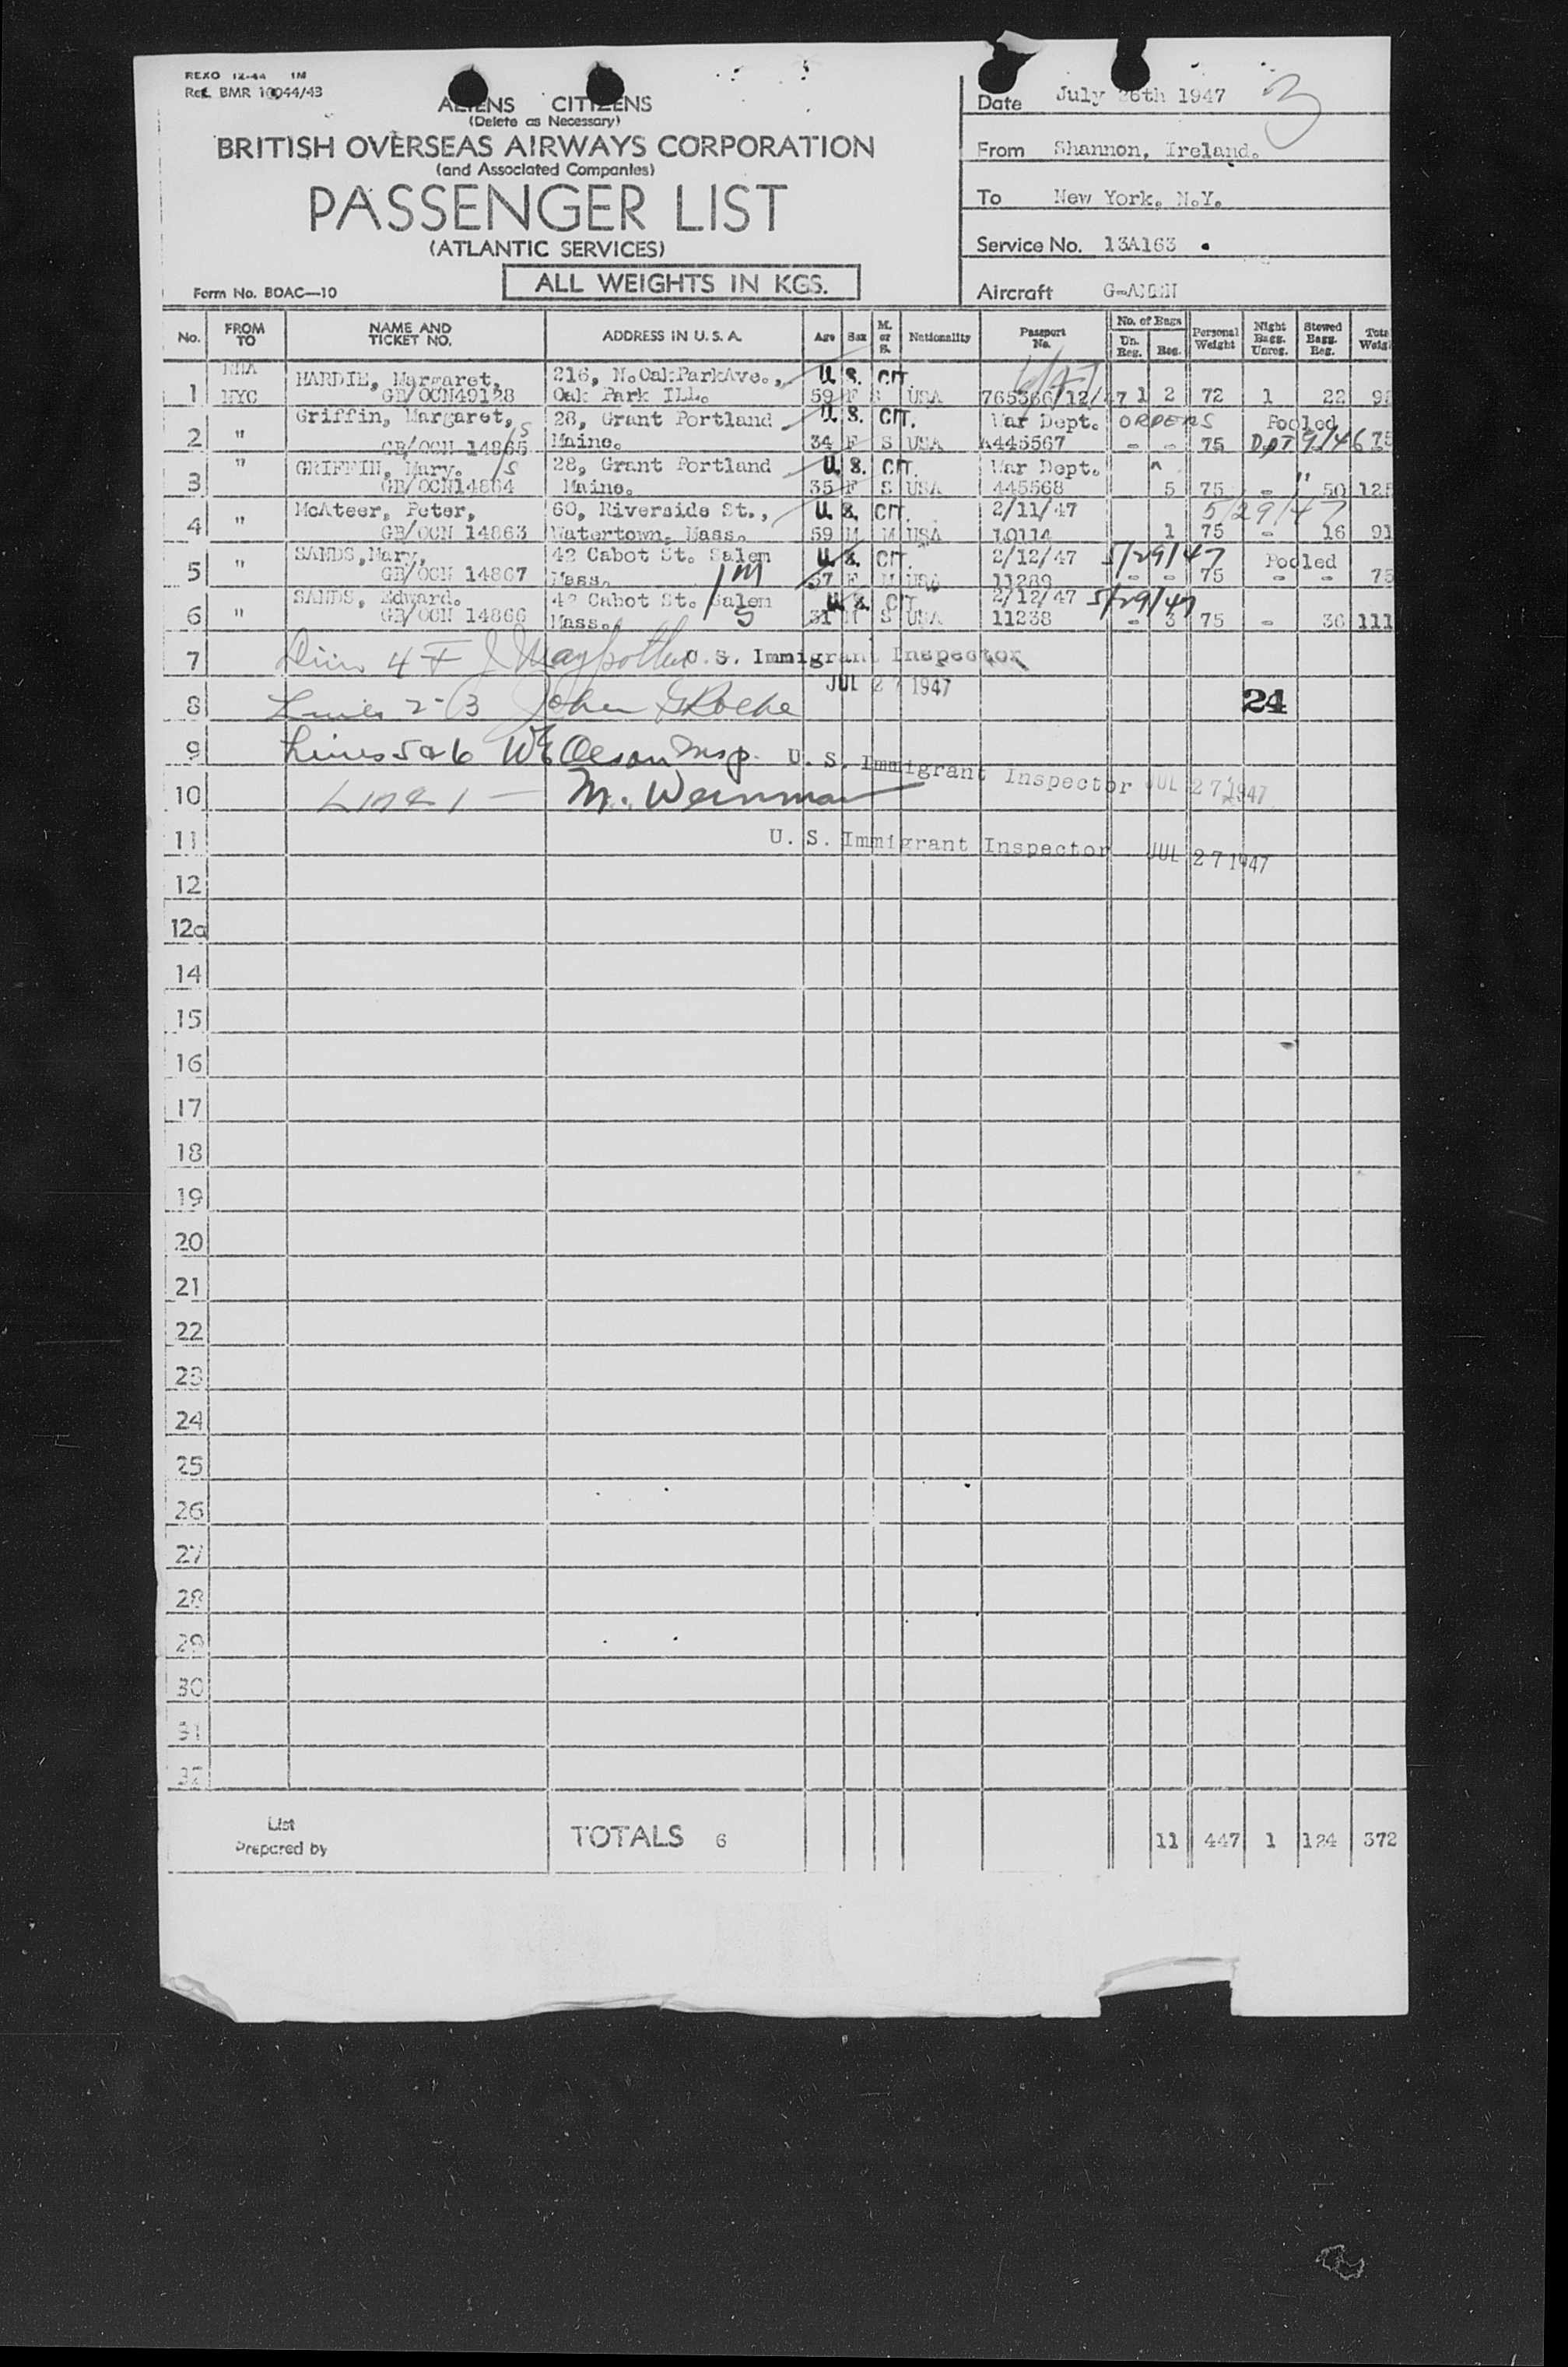 REXO 12-44 1M
Ref. BMR 10044/43
ALIENS CITIZENS
(Delete as Necessary)
BRITISH OVERSEAS AIRWAYS CORPORATION
(and Associated Companies)
PASSENGER LIST
(ATLANTIC SERVICES)
ALL WEIGHTS IN KGS.
Form No. BOAC—10
Date July 26th 1947 3
From Shannon, Ireland.
To New York, N.Y.
Service No. 13A163
Aircraft
No. FROM TO NAME AND TICKET NO. ADDRESS IN U.S.A. Age Sex M. or S. Nationality Passport No. No. of Bags Un. Reg. Reg. Personal Weight Night Bagg. Unreg. Stowed Bagg. Reg.
HARDIE, Margaret, 216, N.OakParkAve., U. S. CIT.
1 NYC GB/OCN49128 Oak Park ILL. 59 F S USA 765366/12/47 1 2 72 1 22
Griffin, Margaret, 28, Grant Portland U. S. CIT. War Dept. ORDERS Pooled
2 " GB/OCN 14865 Maine. 34 F S USA A445567 - - 75 DPT 9/46 75
" GRIFFIN, Mary. /S 28, Grant Portland U. S. CIT. War Dept. "
3 GB/OCN14864 Maine. 35 F S USA 445568 5 75 - 50 125
McAteer, Peter, 60, Riverside St., U. S. CIT. 2/11/47 5/29/47
4 " GB/OCN 14863 Watertown, Mass. 59 M M USA 10114 1 75 - 16 91
SANDS, Mary, 42 Cabot St. Salem U. S. CIT. 2/12/47 5/29/47 Pooled
5 " GB/OCN 14867 Mass. /M 37 F M USA 11289 - - 75 - - 75
SANDS, Edward. 42 Cabot St. Salem U. S. CIT. 2/12/47 5/29/47
6 " GB/OCN 14866 Mass. S 31 M S USA 11238 - 3 75 - 36 111
7 U. S. Immigrant Inspector
JUL 27 1947
8 Lines 2-3 John G Roche 24
9 Lines 5 & 6 Insp. U. S. Immigrant Inspector JUL 27 1947
10 Line 1 — M. Weinman
11 U. S. Immigrant Inspector JUL 27 1947
12
12a
14
15
16
17
18
19
20
21
22
23
24
25
26
27
28
29
30
31
32
List
Prepared by
TOTALS 6 11 447 1 124 372